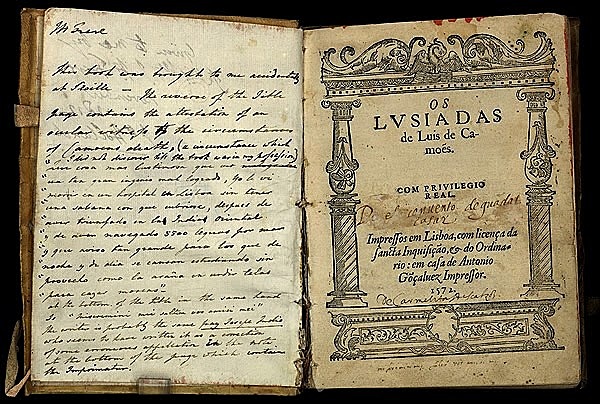 Mr Frere
This book was brought to me accidentally
at Seville — The reverse of the Title
page contains the attestation of an
ocular witness to the circumstances
of Camoens death, (a circumstance which
I did not discover till the book was in my possession)
" que cosa mas lastimosa que ver un
" tan gran ingenio mal logrado. yo lo vi
" morir en un hospital en Lisboa sin tener
" una sabana con que cubrirse, despues de
" aver triunfado en la India Oriental
" y de aver navegado 5500 leguas por mar
" que aviso tan grande para los que de
" noche y de dia se cansan estudiando sin
" provecho como la araña en urdir telas
" para cazar moscas"
At the bottom of the title in the same hand
is
the writer is probably the same fray Josepe Indio
who seems to have written
of some
to the bottom of the page which contains
the Imprimatur.
OS
LVSIADAS
de Luis de Ca-
moẽs.
COM PRIVILEGIO
REAL.
Impressos em Lisboa, com licença da
sancta Inquisição, & do Ordina-
rio: em casa de Antonio
Gõçaluez Impressor.
1572.